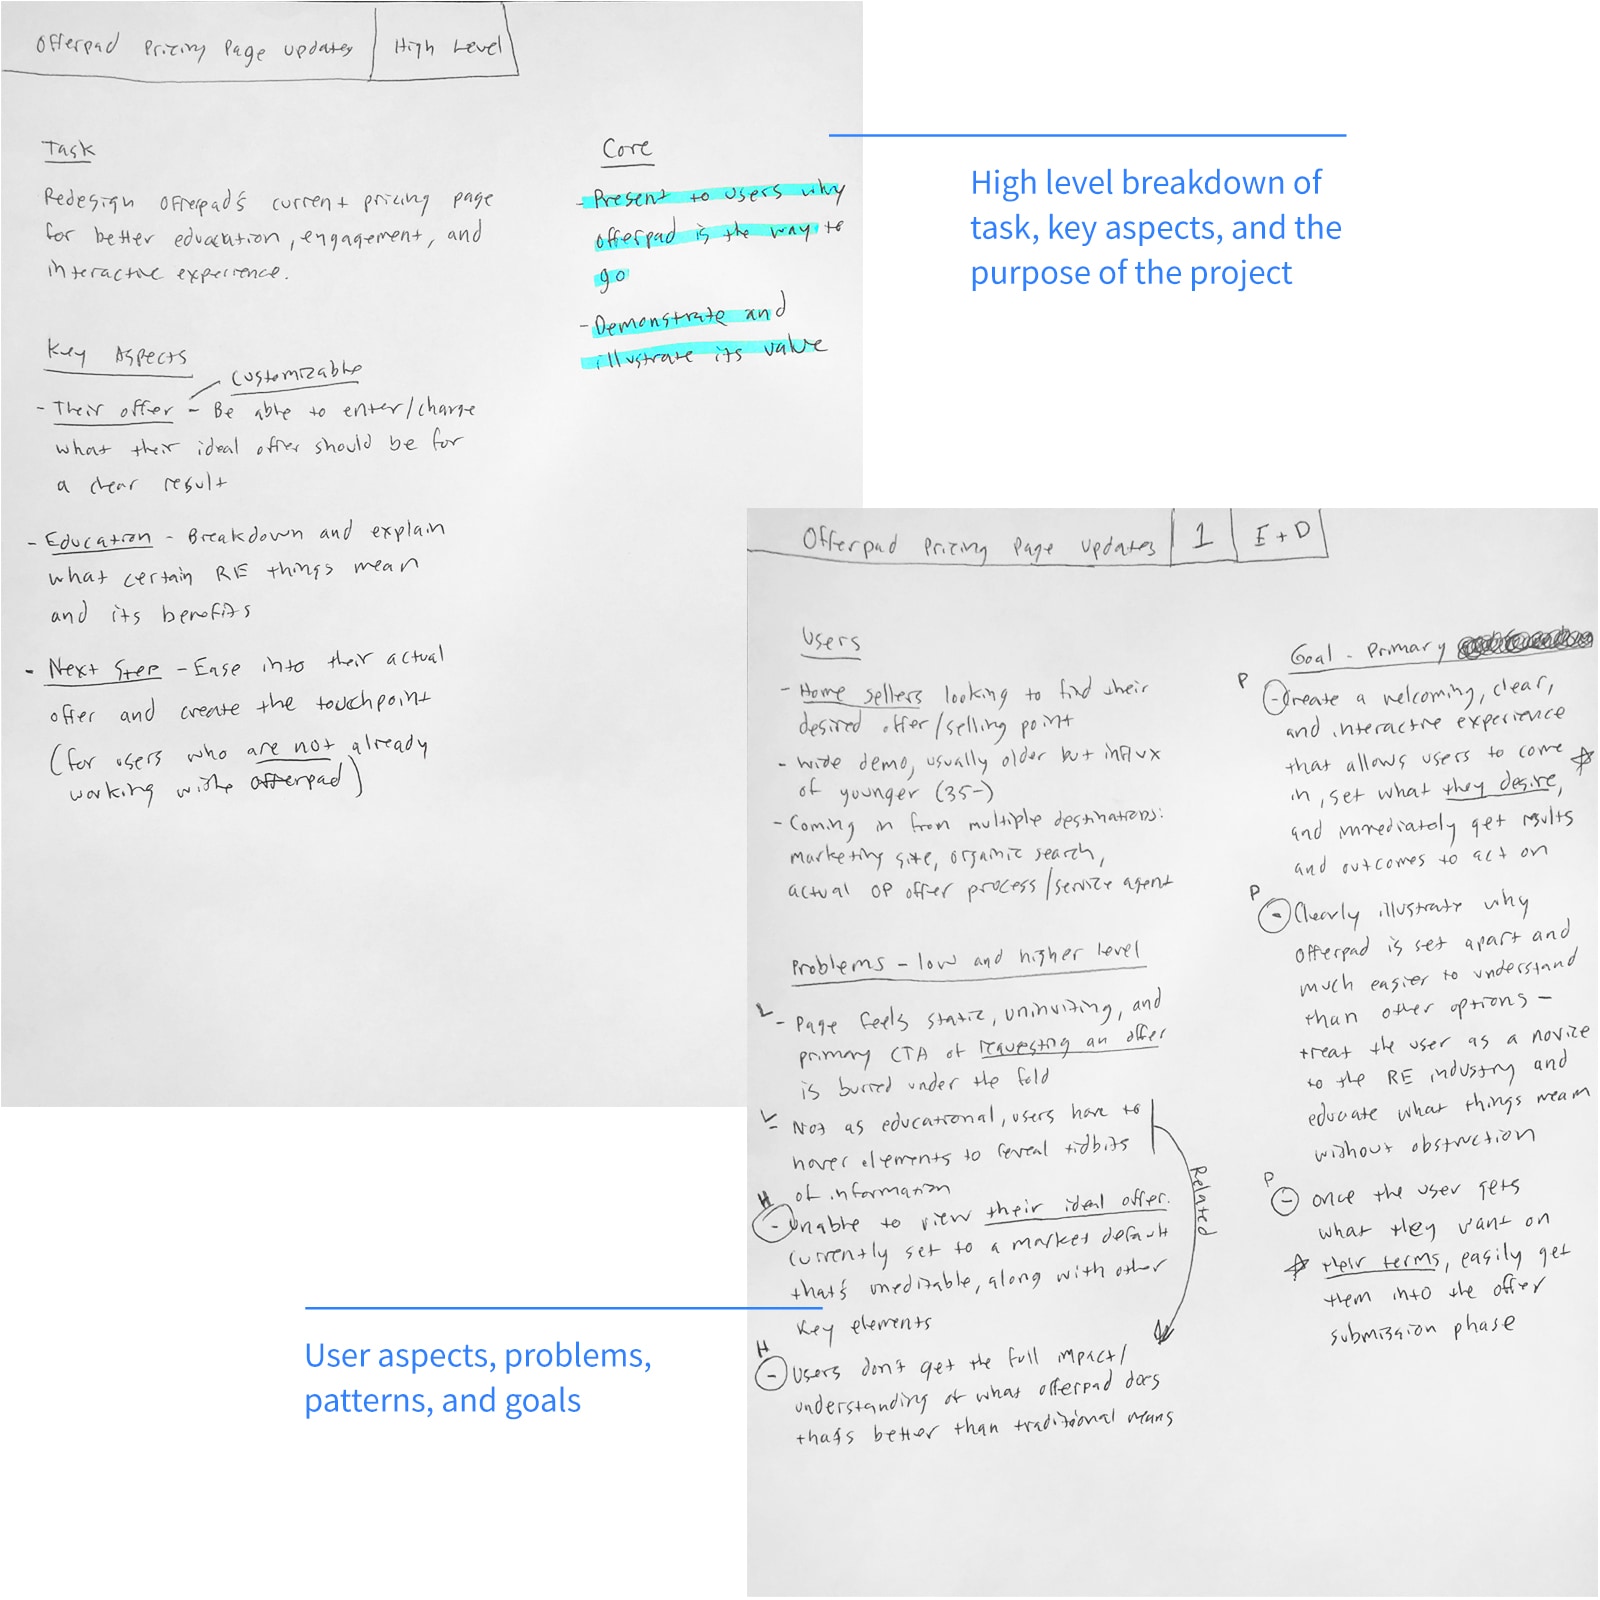 Offerpad Pricing Page Updates | High Level
Task
Redesign Offerpad's current pricing page
for better education, engagement, and
interactive experience.
Key Aspects
Customizable
- Their offer - Be able to enter/change
what their ideal offer should be for
a clear result
- Education - Breakdown and explain
what certain RE things mean
and its benefits
- Next Step - Ease into their actual
offer and create the touchpoint
(for users who are not already
working with offerpad)
Core
- Present to users why
offerpad is the way to
go
- Demonstrate and
illustrate its value
High level breakdown of
task, key aspects, and the
purpose of the project
Offerpad Pricing Page Updates | 1 | E + D
Users
- Home sellers looking to find their
desired offer/selling point
- Wide demo, usually older but influx
of younger (35-)
- Coming in from multiple destinations:
marketing site, organic search,
actual OP offer process/service agent
Problems - low and higher level
L - Page feels static, uninviting, and
primary CTA of requesting an offer
is buried under the fold
L - Not as educational, users have to
hover elements to reveal tidbits
of information
H - Unable to view their ideal offer.
Currently set to a market default
that's uneditable, along with other
key elements
H - Users don't get the full impact/
understanding of what offerpad does
that's better than traditional means
Related
Goal - Primary
P - Create a welcoming, clear,
and interactive experience
that allows users to come
in, set what they desire,
and immediately get results
and outcomes to act on
P - Clearly illustrate why
offerpad is set apart and
much easier to understand
than other options -
treat the user as a novice
to the RE industry and
educate what things mean
without obstruction
P - Once the user gets
what they want on
their terms, easily get
them into the offer
submission phase
User aspects, problems,
patterns, and goals